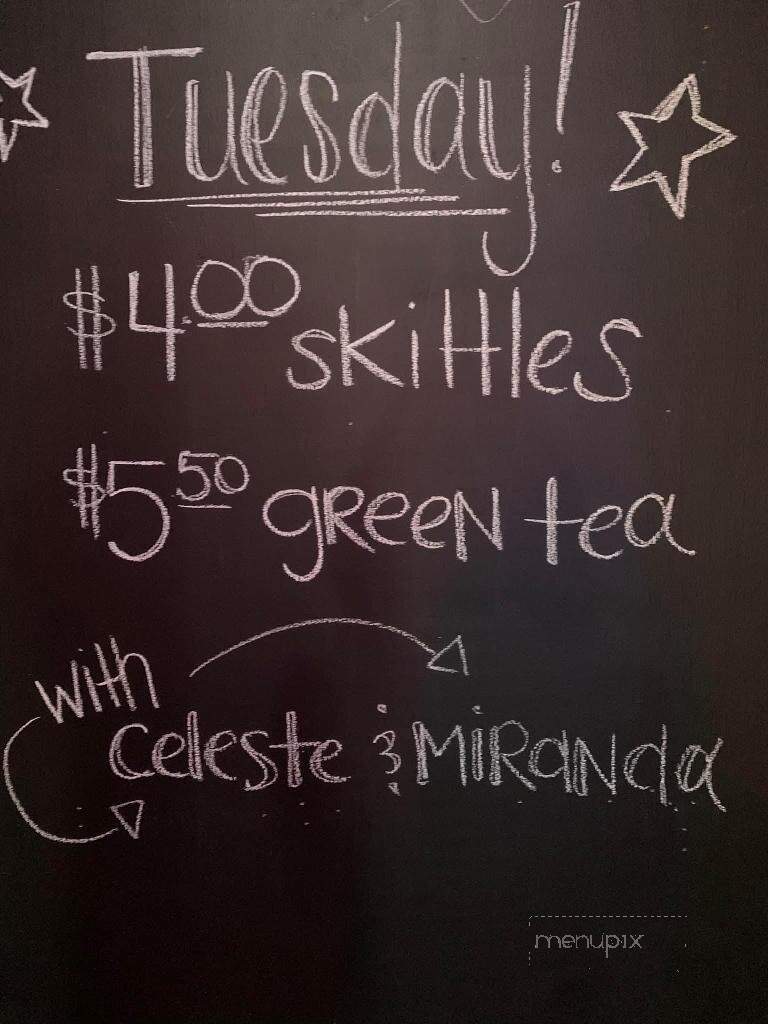 Tuesday!
$4.00 skittles
$5.50 green tea
with
celeste & Miranda
menupix